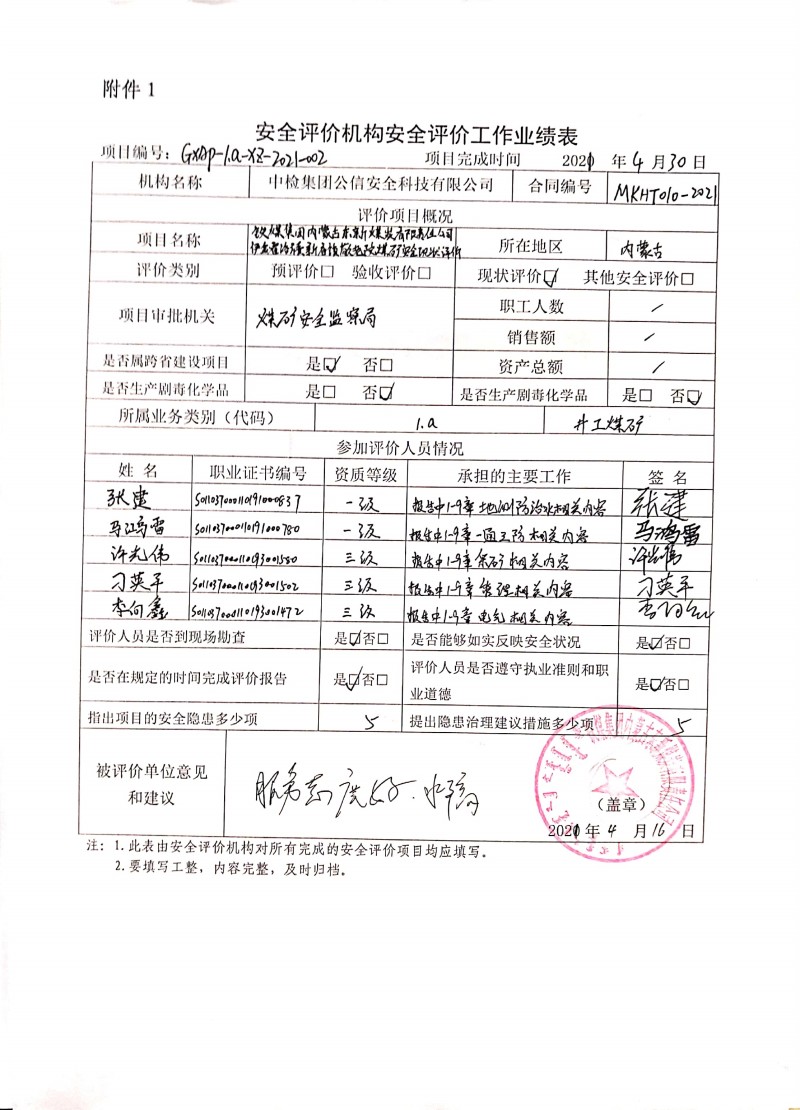 附件 1
安全评价机构安全评价工作业绩表
项目编号：GXAP-1.a-XZ-2021-002 项目完成时间 2021 年 4 月 30 日
机构名称 中检集团公信安全科技有限公司 合同编号 MKHT010-2021
评价项目概况
项目名称 煤集团内蒙古 有限责任公司 煤矿安全现状评价 所在地区 内蒙古
评价类别 预评价□ 验收评价□ 现状评价☑ 其他安全评价□
项目审批机关 煤矿安全监察局 职工人数 /
销售额 /
是否属跨省建设项目 是☑ 否□ 资产总额 /
是否生产剧毒化学品 是□ 否☑ 是否生产剧毒化学品 是□ 否☑
所属业务类别（代码） 1.a 井工煤矿
参加评价人员情况
姓 名 职业证书编号 资质等级 承担的主要工作 签 名
张建 S011037000110191000837 一级 报告中1-9章地测防治水相关内容 张建
马鸿雷 S011037000110191000780 一级 报告中1-9章一通三防相关内容 马鸿雷
许光伟 S011037000110193001580 三级 报告中1-9章采矿相关内容 许光伟
刁英平 S011037000110193001502 三级 报告中1-9章管理相关内容 刁英平
李向鑫 S011037000110193001472 三级 报告中1-9章电气相关内容
评价人员是否到现场勘查 是☑否□ 是否能够如实反映安全状况 是☑否□
是否在规定的时间完成评价报告 是☑否□ 评价人员是否遵守执业准则和职
业道德 是☑否□
指出项目的安全隐患多少项 5 提出隐患治理建议措施多少项 5
被评价单位意见
和建议 服务态度好.水平高
（盖章）
2021 年 4 月 16 日
注：1.此表由安全评价机构对所有完成的安全评价项目均应填写。
2.要填写工整，内容完整，及时归档。